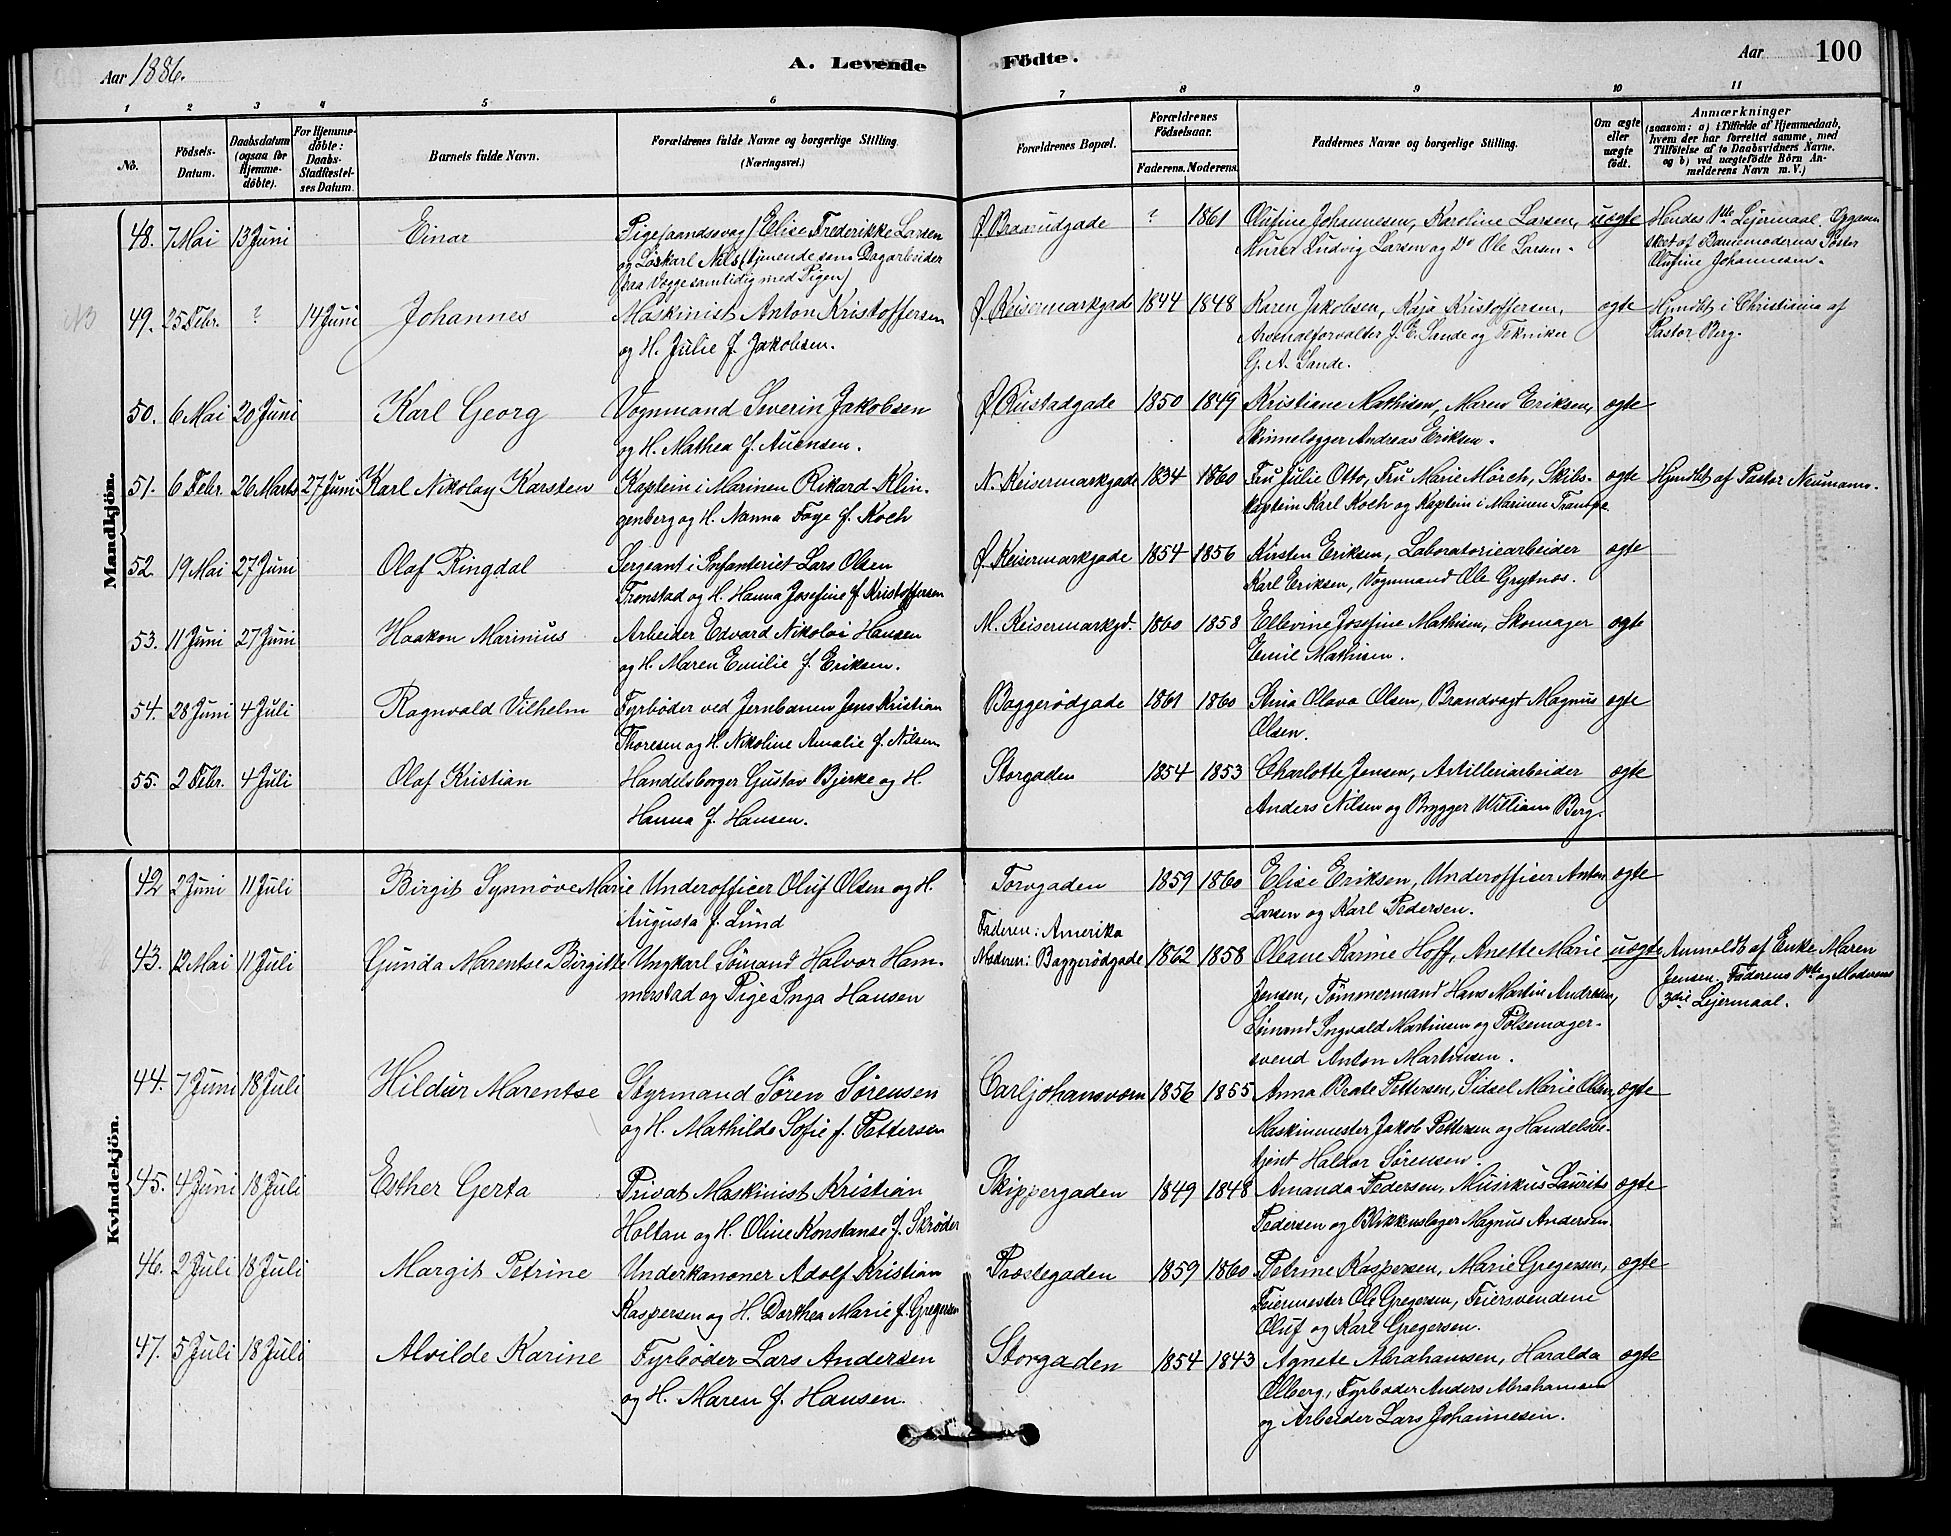 Aar 1886.
A. Levende
Födte.
Aar
100
1 2 3 4 5 6 7 8 9 10 11
No.
Födsels-Datum.
Daabsdatum (ogsaa for Hjemme-döbte).
For Hjemme-döbte: Daabs-Stadfæstel-ses Datum.
Barnets fulde Navn.
Forældrenes fulde Navne og borgerlige Stilling
(Næringsvei.)
Forældrenes Bopæl.
Forældrenes Födselsaar.
Faderens. Moderens.
Faddernes Navne og borgerlige Stilling.
Om ægte eller uægte födt.
Anmærkninger
(saasom: a) i Tilfælde af Hjemmedaab, hvem der har forrettet samme, med Tilföielse af to Daabsvidners Navne. og b) ved uægtefödte Börn An-melderens Navn m. V.)
Mandkjön.
48. 7 Mai 13 Juni Einar Pige (aandssvag) Elise Frederikke Larsen Ø. Braarudgade ? 1861 Olufine Johannesen, Karoline Larsen, uægte Hendes 1ste Lejermaal. Opgaven
og Løskarl Nils (tjenende som Dagarbeider Murer Ludvig Larsen og Do Ole Larsen. sket af Barnemoderens Søster
paa Vogge samtidig med Pigen) Olufine Johannesen.
NB 49. 25 Febr. ? 14 Juni Johannes Maskinist Anton Kristoffersen Ø. Keisermarkgade 1844 1848 Karen Jakobsen, Kaja Kristoffersen, ægte Hjmdbt i Christiania af
og H. Julie f. Jakobsen. Arsenalforvalter J. E. Sande og Tekniker Pastor Berg.
G. A. Sande.
50. 6 Mai 20 Juni Karl Georg Vognmand Severin Jakobsen Ø Rustadgade 1850 1849 Kristiane Mathisen, Maren Eriksen, ægte
og H. Mathea f. Auensen. Skinnelægger Andreas Eriksen.
51. 6 Febr. 26 Marts 27 Juni Karl Nikolay Karsten Kaptein i Marinen Rikard Klin- N. Keisermarkgade 1834 1860 Fru Julie Otto, Fru Marie Mörch, Skibs- ægte Hjmdbt af Pastor Neumann.
genberg og H. Nanna Foye f. Koch kaptein Karl Koch og Kaptein i Marinen Trampe
52. 19 Mai 27 Juni Olaf Ringdal Sergeant i Infanteriet Lars Olsen Ø. Keisermarkgade 1854 1856 Kirsten Eriksen, Laboratoriearbeider ægte
Tronstad og H. Hanna Josefine f. Kristoffersen Karl Eriksen, Vognmand Ole Grytnes.
53. 11 Juni 27 Juni Haakon Marinius Arbeider Edvard Nikolai Hansen M. Keisermarkgd. 1860 1858 Ellevine Josefine Mathisen, Skomager ægte
og H. Maren Emilie f. Eriksen. Emil Mathisen.
54. 28 Juni 4 Juli Ragnvald Vilhelm Fyrbøder ved Jernbanen Jens Kristian Baggerødgade 1861 1860 Stina Olava Olsen, Brandvagt Magnus ægte
Thoresen og H. Nikoline Amalie f. Nilsen Olsen.
55. 2 Febr. 4 Juli Olaf Kristian Handelsborger Gustav Bjerke og H. Storgaden 1854 1853 Charlotte Jensen, Artilleriarbeider ægte
Hanna f. Hansen. Anders Nilsen og Brygger William Berg.
Kvindekjön.
42 2 Juni 11 Juli Birgit Synnøve Marie Underofficer Oluf Olsen og H. Torvgaden 1859 1860 Elise Eriksen, Underofficer Anton ægte
Augusta f. Lund Larsen og Karl Pedersen.
Faderen: Amerika
43. 12 Mai 11 Juli Gunda Marentse Birgitte Ungkarl Sømand Halvor Ham- Moderen: Baggerødgade 1862 1858 Oleane Karine Hoff, Anette Marie uægte Anmeldt af Enke Maren
merstad og Pige Inga Hansen Jensen, Tømmermand Hans Martin Andresen, Jensen. Faderens 1ste og Moderens
Sømand Ingvald Martinsen og Pølsemager- 3die Lejermaal.
svend Anton Martinsen.
44. 7 Juni 18 Juli Hildur Marentse Styrmand Søren Sørensen Carljohansværn 1856 1855 Anna Beate Pettersen, Sidsel Marie Olsen, ægte
og H. Mathilde Sofie f. Pettersen Maskinmester Jakob Pettersen og Handelsbe-
tjent Haldor Sørensen.
45. 4 Juni 18 Juli Esther Gerta Privat Maskinist Kristian Skippergaden 1849 1848 Amanda Pedersen, Musikus Laurits ægte
Holtan og H. Oline Konstanse f. Skrøder Pedersen og Blikkenslager Magnus Andersen.
46. 2 Juli 18 Juli Margit Petrine Underkanoner Adolf Kristian Præstegaden 1859 1860 Petrine Kaspersen, Marie Gregersen, ægte
Kaspersen og H. Dorthea Marie f. Gregersen Feiermester Ole Gregersen, Feiersvendene
Oluf og Karl Gregersen.
47. 5 Juli 18 Juli Alvilde Karine Fyrbøder Lars Andersen Storgaden 1854 1843 Agnete Abrahamsen, Haralda ægte
og H. Maren f. Hansen. Ølberg, Fyrbøder Anders Abrahamsen
og Arbeider Lars Johannesen.